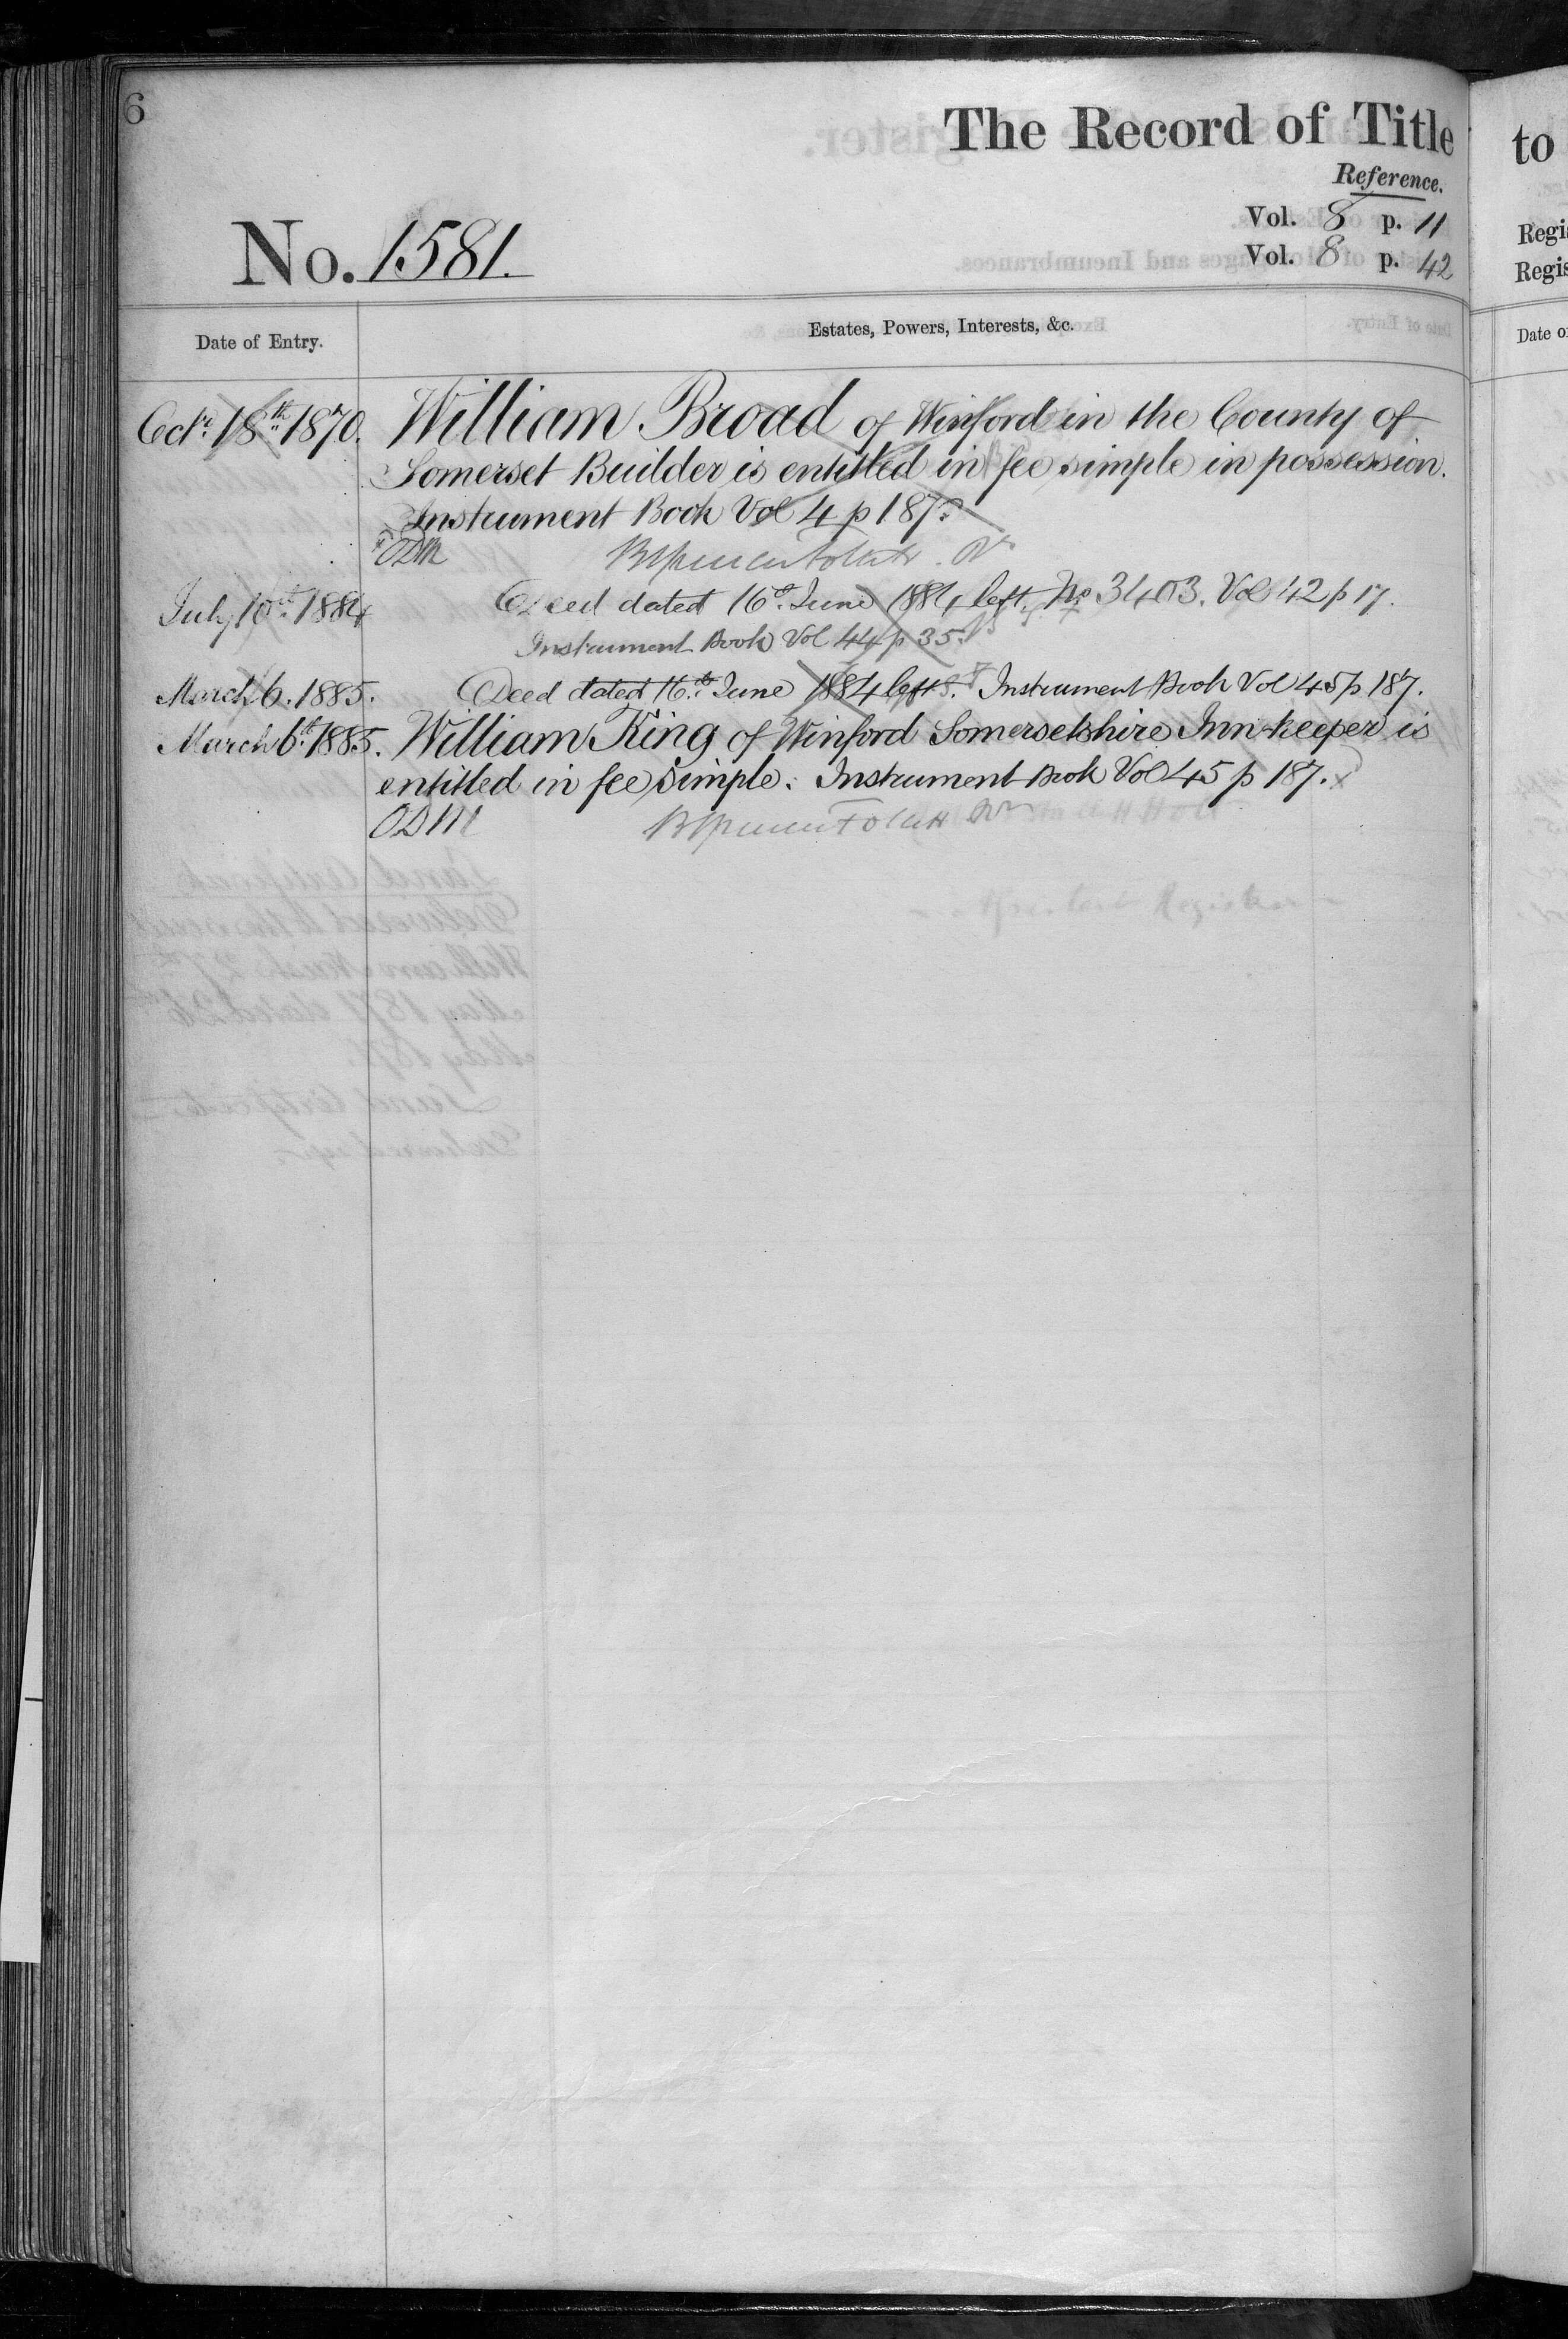 6
The Record of Title
Reference.
Vol. 8 p. 11
No. 1581.
Vol. 8 p. 42
Date of Entry.
Estates, Powers, Interests, &c.
Octr. 18th 1870. William Broad of Winford in the County of
Somerset Builder is entitled in fee simple in possession.
Instrument Book Vol 4 p 187.
July 10th 1884 Deed dated 16th June 1884 left. No 3403. Vol 42 p 17.
Instrument Book Vol 44 p 35.
March 6. 1885. Deed dated 16th June 1884 left. Instrument Book Vol 45 p 187.
March 6th 1885. William King of Winford Somersetshire Inn-keeper is
entitled in fee simple. Instrument Book Vol 45 p 187.
to
Regis
Regis
Date o